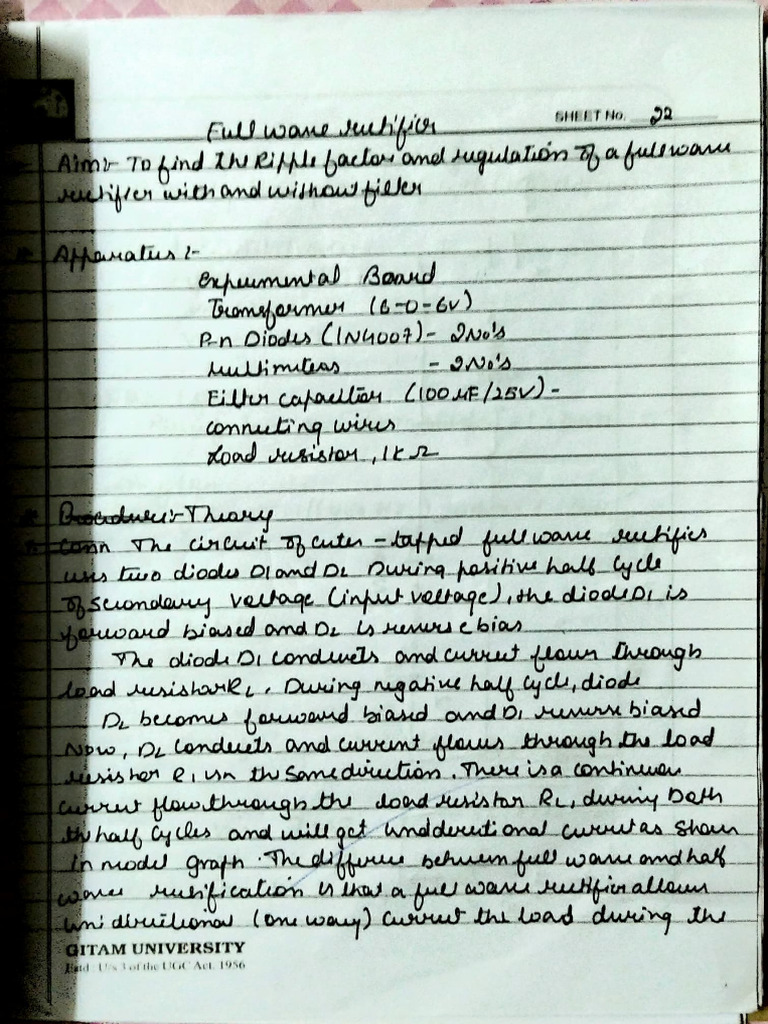 SHEET No. 22
Full wave rectifier
Aim:- To find the Ripple factor and regulation of a full wave
rectifier with and without filter
Apparatus :-
Experimental Board
Transformer (6-0-6V)
P-n Diodes (1N4007) - 2No's
multimeters - 2No's
Filter capacitor (100μF/25V) -
connecting wires
Load resistor, 1kΩ
Procedure:- Theory
Conn The circuit of center-tapped full wave rectifier
uses two diodes D1 and D2 During positive half cycle
of secondary voltage (input voltage), the diode D1 is
forward biased and D2 is reverse bias
The diode D1 conducts and current flows through
load resistor RL. During negative half cycle, diode
D2 becomes forward biased and D1 reverse biased
Now, D2 conducts and current flows through the load
resistor R1 in the same direction. There is a continuous
current flow through the load resistor RL, during both
the half cycles and will get unidirectional current as show
in model graph. The difference between full wave and half
wave rectification is that a full wave rectifier allows
unidirectional (one way) current the load during the
GITAM UNIVERSITY
Estd : U/s 3 of the UGC Act. 1956